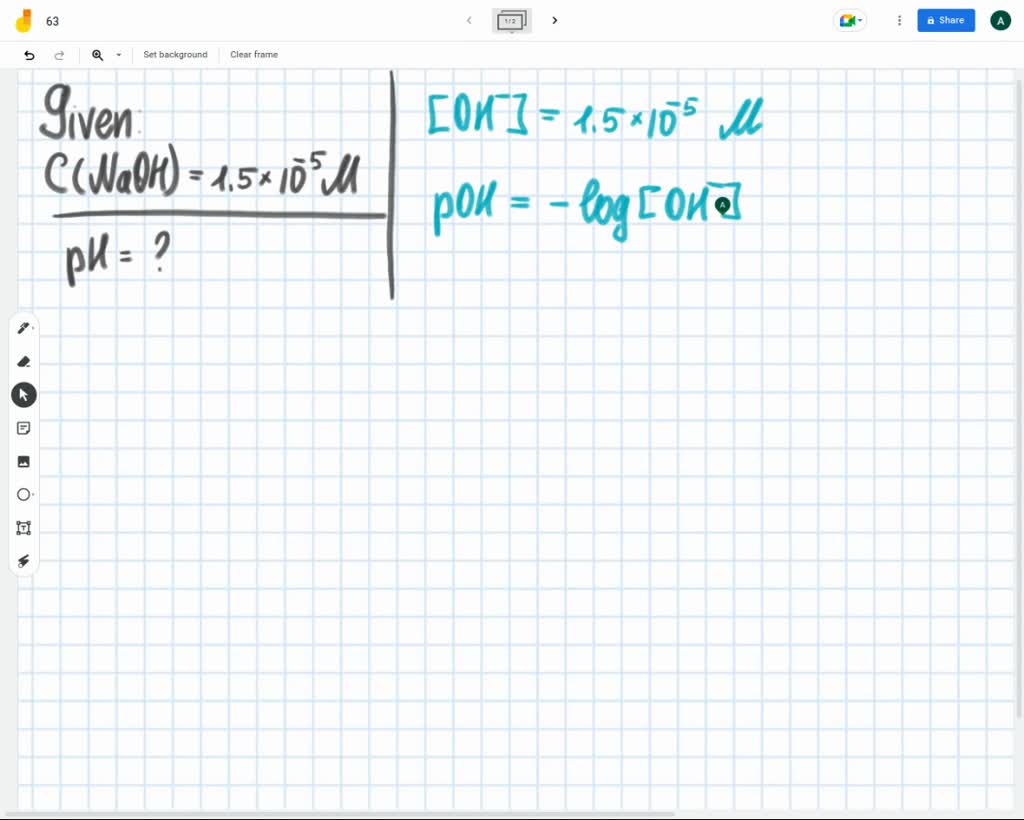 63
1/2
Share
A
Set background
Clear frame
Given:
C(NaOH) = 1.5 × 10⁻⁵ M
pH = ?
[OH⁻] = 1.5 × 10⁻⁵ M
pOH = - log [OH⁻]
A